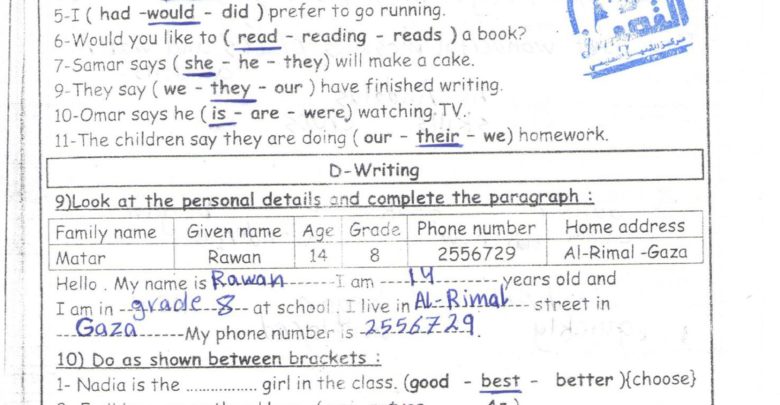 5-I ( had -would - did ) prefer to go running.
6-Would you like to ( read - reading - reads ) a book?
7-Samar says ( she - he - they) will make a cake.
9-They say ( we - they - our ) have finished writing.
10-Omar says he ( is - are - were) watching TV.
11-The children say they are doing ( our - their - we) homework.
D-Writing
9)Look at the personal details and complete the paragraph :
Family name Given name Age Grade Phone number Home address
Matar Rawan 14 8 2556729 Al-Rimal -Gaza
Hello . My name is Rawan--------I am ----14----------years old and
I am in ---grade 8--- at school . I live in Al-Rimal--- street in
---Gaza----------My phone number is -2556729-.
10) Do as shown between brackets :
1- Nadia is the .................. girl in the class. (good - best - better ){choose}